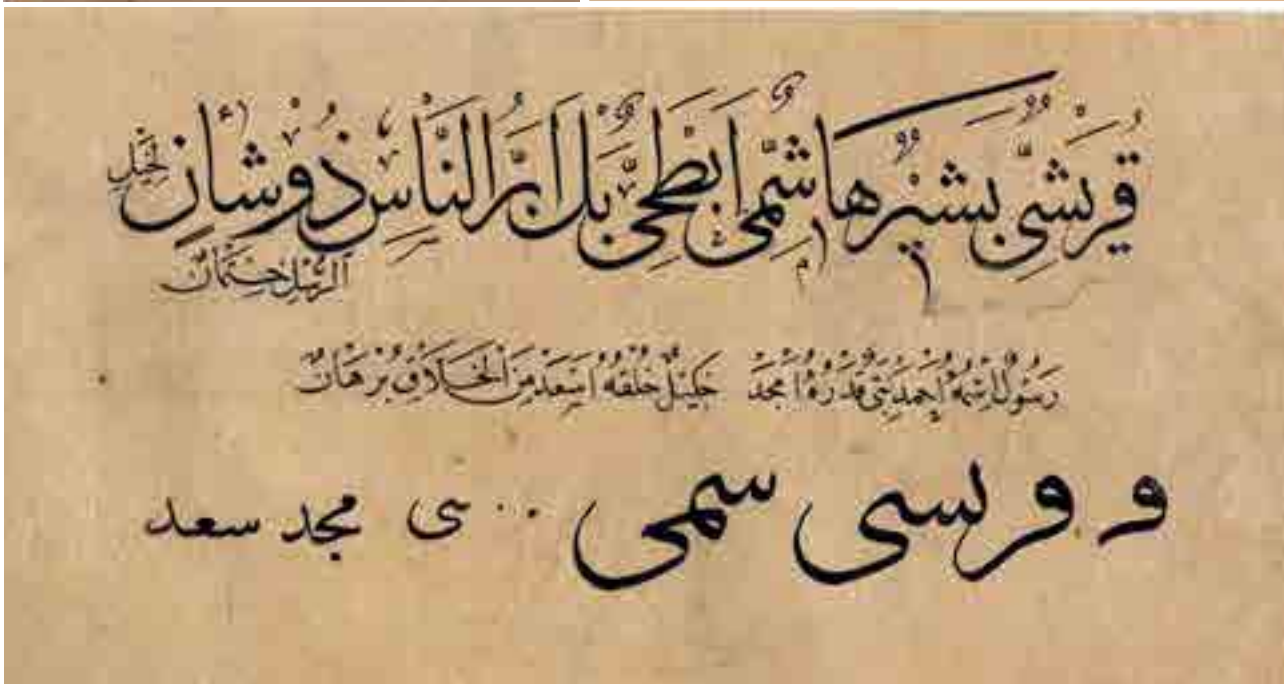 قُرَيْشِيٌّ بَشِيْرٌ هَاشِمِيٌّ اَبْطَحِيٌّ بَلْ اَبَرُّ النَّاسِ ذُوْشَانٍ
الرُّسْلِ خِتْمَانٌ
رَسُولٌ اِسْمُهُ اَحْمَدْ نَبِيٌّ قَدْرُهُ اَمْجَدْ جَلِيْلٌ خُلْقُهُ اَسْعَدْ مِنَ الْخَلَّاقِ بُرْهَانٌ
و و ر سى سمى . . سى مجد سعد